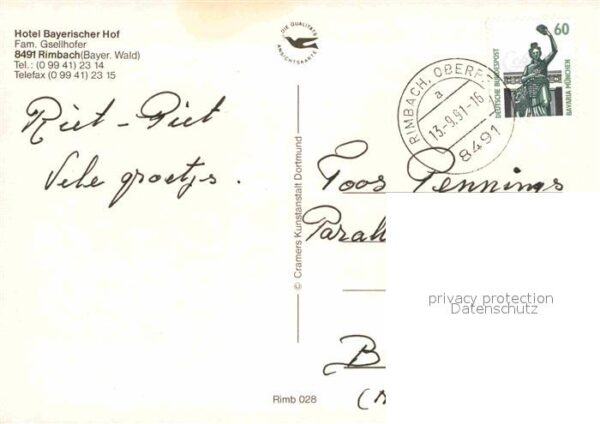 Hotel Bayerischer Hof
Fam. Gsellhofer
8491 Rimbach (Bayer. Wald)
Tel.: (0 99 41) 23 14
Telefax (0 99 41) 23 15
DIE QUALITÄTS
ANSICHTSKARTE
60
DEUTSCHE BUNDESPOST
BAVARIA MÜNCHEN
RIMBACH, OBERPF
a
13.-9.91-16
8491
Riet - Piet
Vele groetjes.
Toos Pennings
Parak
B
(N
© Cramers Kunstanstalt Dortmund
privacy protection
Datenschutz
Rimb 028